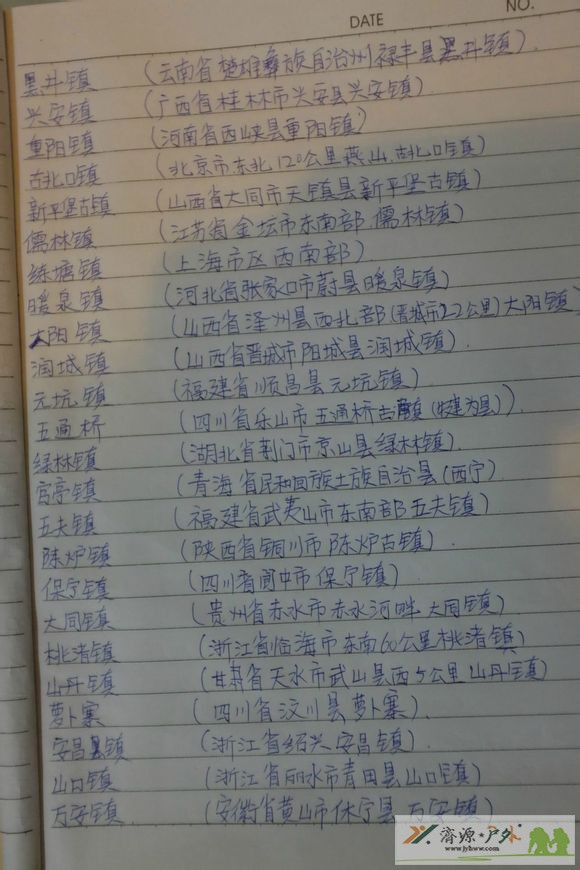 DATE
NO.
黑井镇 (云南省楚雄彝族自治州禄丰县黑井镇).
兴安镇 (广西省桂林市兴安县兴安镇)
重阳镇 (河南省西峡县重阳镇)
古北口镇 (北京市东北120公里燕山.古北口镇)
新平堡古镇 (山西省大同市天镇县新平堡古镇)
儒林镇 (江苏省金坛市东南部 儒林镇)
练塘镇 (上海市区西南部)
暖泉镇 (河北省张家口市蔚县暖泉镇)
大阳镇 (山西省泽州县西北部(晋城市22公里)大阳镇)
润城镇 (山西省晋城市阳城县润城镇)
元坑镇 (福建省顺昌县元坑镇)
五通桥 (四川省乐山市五通桥古镇(犍为县)).
绿林镇 (湖北省荆门市京山县绿林镇).
官亭镇 (青海省民和回族土族自治县(西宁)
五夫镇 (福建省武夷山市东南部五夫镇)
陈炉镇 (陕西省铜川市陈炉古镇)
保宁镇 (四川省阆中市保宁镇)
大同镇 (贵州省赤水市赤水河畔大同镇)
桃渚镇 (浙江省临海市东南60公里桃渚镇)
山丹镇 (甘肃省天水市武山县西5公里山丹镇)
萝卜寨 (四川省汶川县萝卜寨).
安昌镇 (浙江省绍兴安昌镇)
山口镇 (浙江省丽水市青田县山口镇)
万安镇 (安徽省黄山市休宁县万安镇)
济源·户外
www.jyhww.com